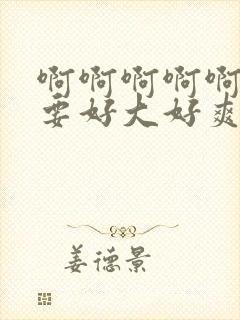 啊啊啊啊啊
要好大好爽
姜德景